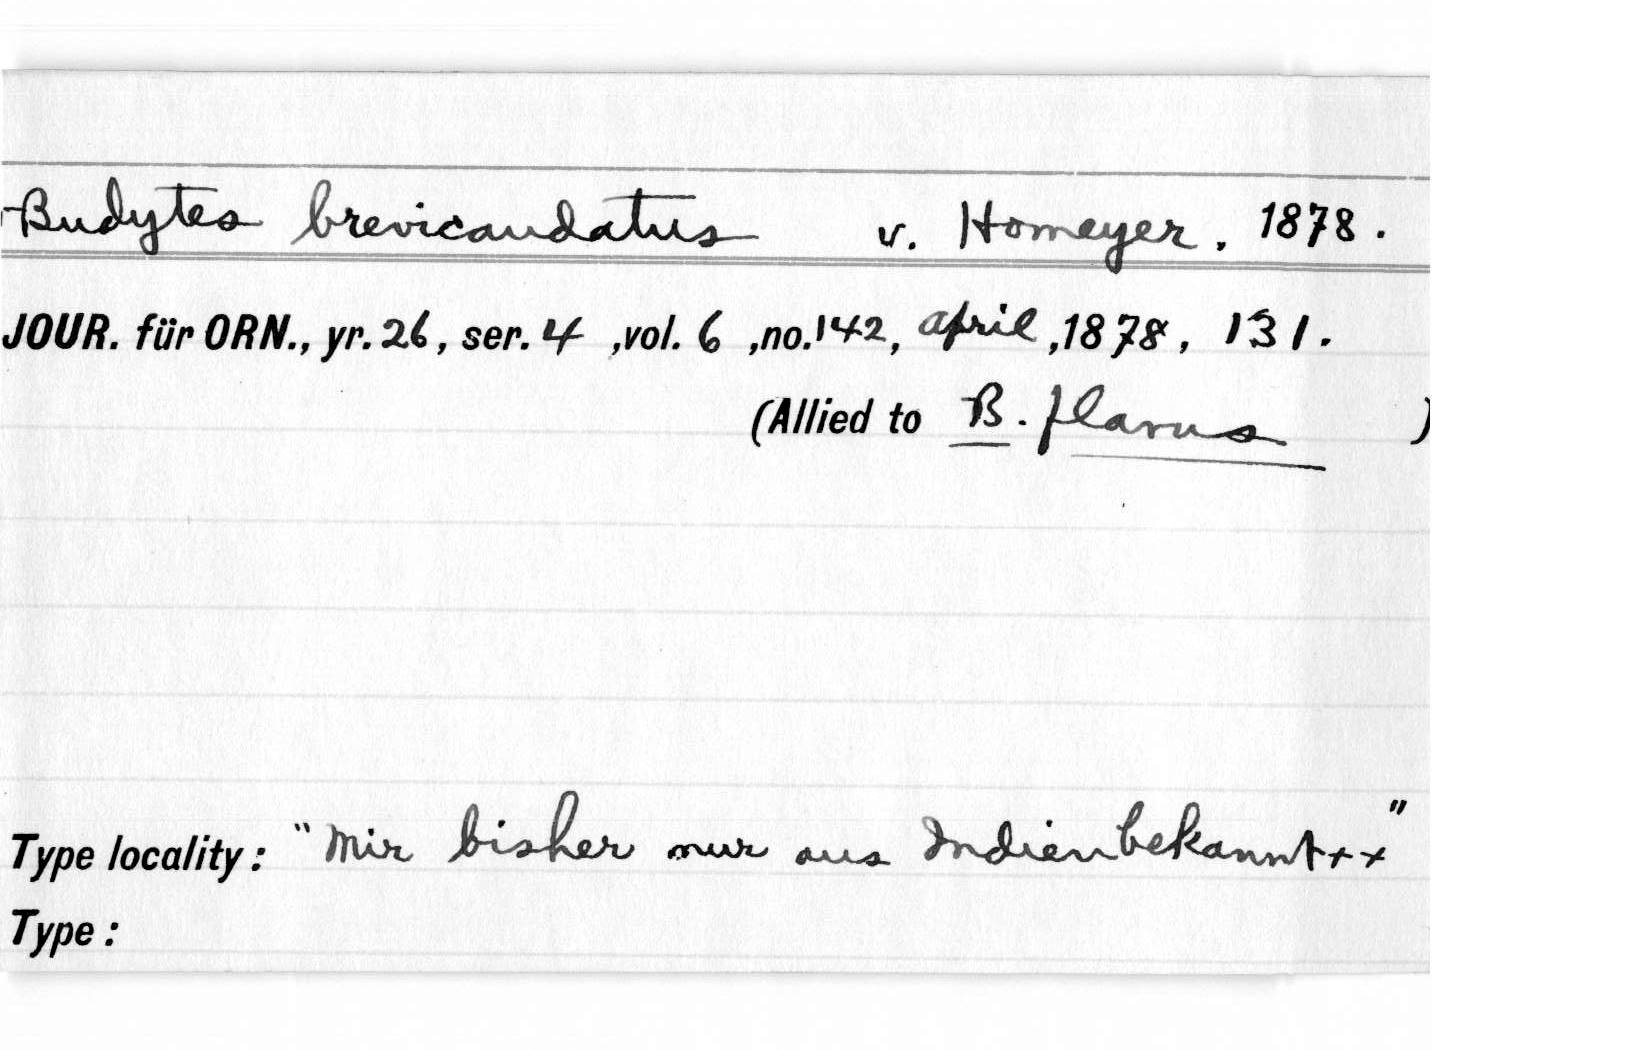 Budytes brevicaudatus v. Homeyer, 1878.
JOUR. für ORN., yr. 26, ser. 4 ,vol. 6 ,no. 142, april ,1878, 131.
(Allied to B. flavus )
Type locality: "Mir bisher nur aus Indien bekannt++"
Type: